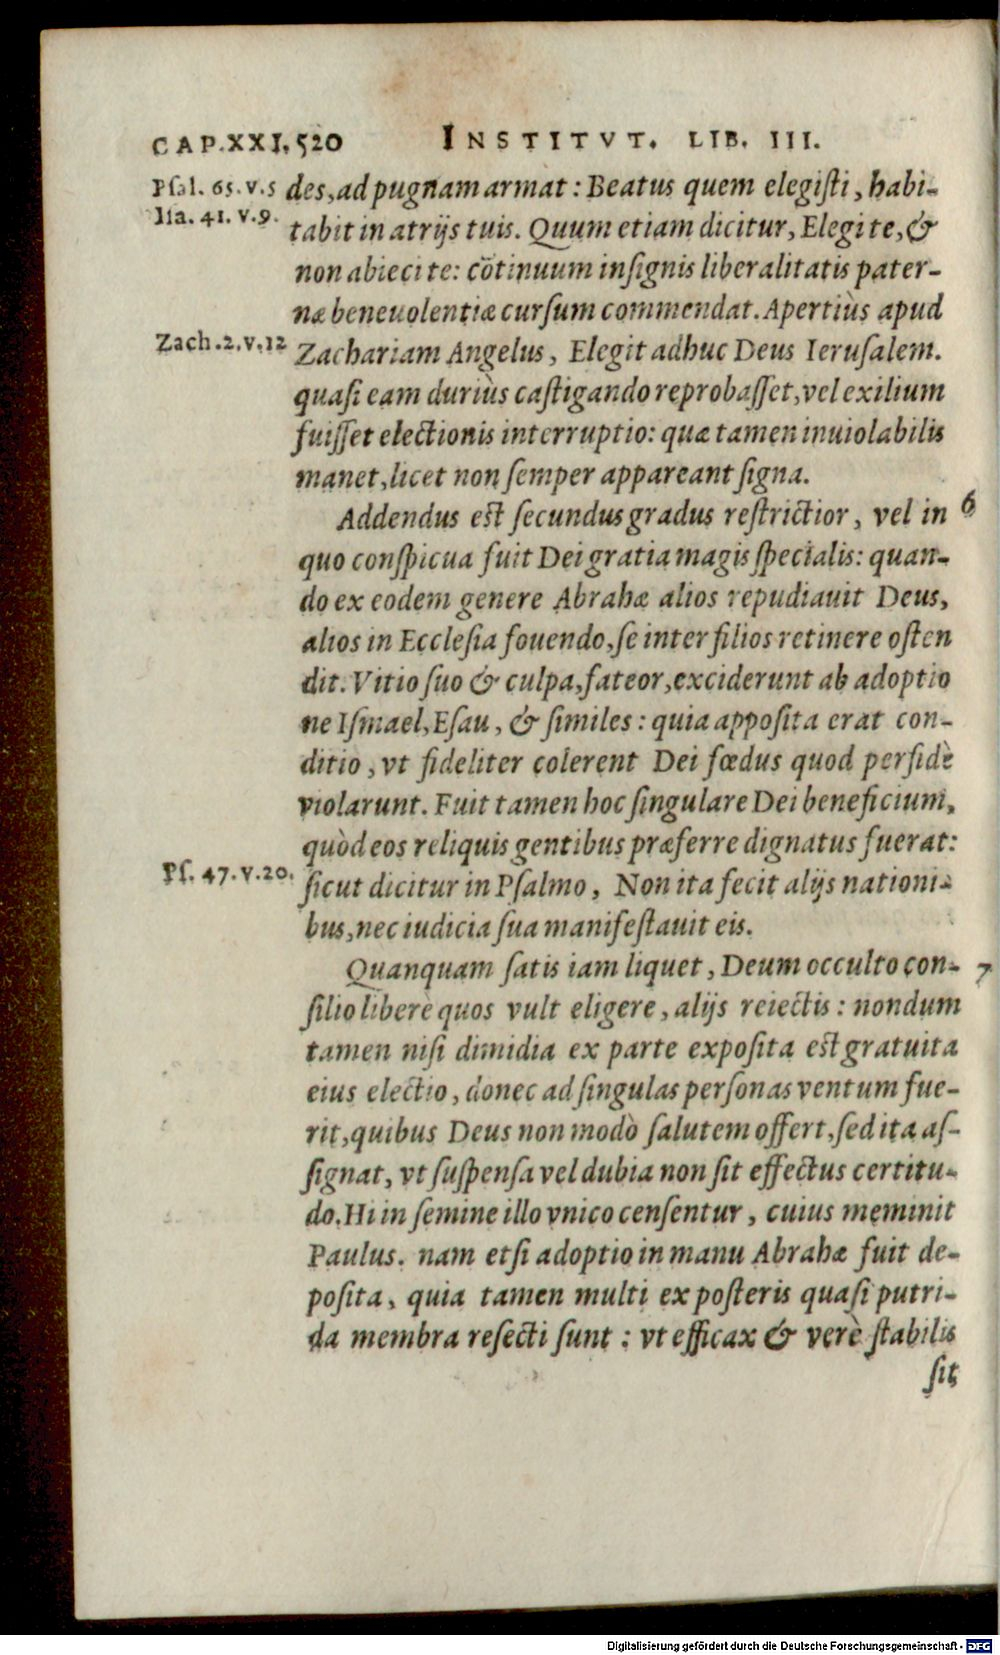 CAP.XXI. 520 INSTITVT. LIB. III.
Psal. 65. v. 5
Isa. 41. v. 9.
des, ad pugnam armat: Beatus quem elegisti, habi-
tabit in atrijs tuis. Quum etiam dicitur, Elegi te, &
non abieci te: cõtinuum insignis liberalitatis pater-
næ beneuolentiæ cursum commendat. Apertiùs apud
Zach. 2. v. 12
Zachariam Angelus, Elegit adhuc Deus Ierusalem.
quasi eam duriùs castigando reprobasset, vel exilium
fuisset electionis interruptio: quæ tamen inuiolabilis
manet, licet non semper appareant signa.
Addendus est secundus gradus restrictior, vel in 6
quo conspicua fuit Dei gratia magis specialis: quan-
do ex eodem genere Abrahæ alios repudiauit Deus,
alios in Ecclesia fouendo, se inter filios retinere osten
dit. Vitio suo & culpa, fateor, exciderunt ab adoptio
ne Ismael, Esau, & similes: quia apposita erat con-
ditio, vt fideliter colerent Dei fœdus quod perfidè
violarunt. Fuit tamen hoc singulare Dei beneficium,
quòd eos reliquis gentibus præferre dignatus fuerat:
Ps. 47. v. 20.
sicut dicitur in Psalmo, Non ita fecit alijs nationi-
bus, nec iudicia sua manifestauit eis.
Quanquam satis iam liquet, Deum occulto con- 7
silio liberè quos vult eligere, alijs reiectis: nondum
tamen nisi dimidia ex parte exposita est gratuita
eius electio, donec ad singulas personas ventum fue-
rit, quibus Deus non modò salutem offert, sed ita as-
signat, vt suspensa vel dubia non sit effectus certitu-
do. Hi in semine illo vnico censentur, cuius meminit
Paulus. nam etsi adoptio in manu Abrahæ fuit de-
posita, quia tamen multi ex posteris quasi putri-
da membra resecti sunt: vt efficax & verè stabilis
sit
Digitalisierung gefördert durch die Deutsche Forschungsgemeinschaft - DFG